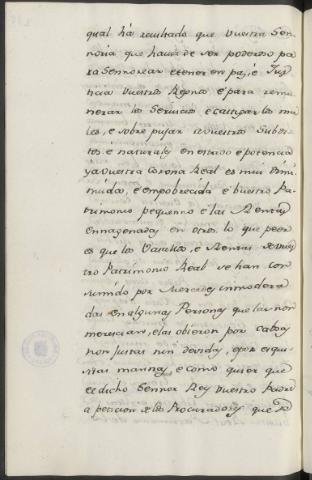 qual há resultado que Vuestra Sen-
noria que havia de ser poderoso pa
ra Sennorear e tener en paz, é Jus-
ticia Vuestros Regnos é para remu
nerar los Servicios e castigar los ma
les, e sobre pujar a vuestros Subdi-
tos é naturales en estado e potencia
ya vuestra Corona Real es mui dimi
nuida, é empobrecida e buestro Pa-
trimonio pequenno e las Rentas
ennagenadas en otros lo que peor
es que los Vasallos, e Rentas de vues
tro Patrimonio Real se han con
sumido por Mercedes inmodera
das en algunas Personas que las non
merescian, e las obieron por cabsas
non justas nin devidas, e por exqui-
sitas maneras, e como quier que
el dicho Sennor Rey Vuestro Padre
a peticion de los Procuradores que